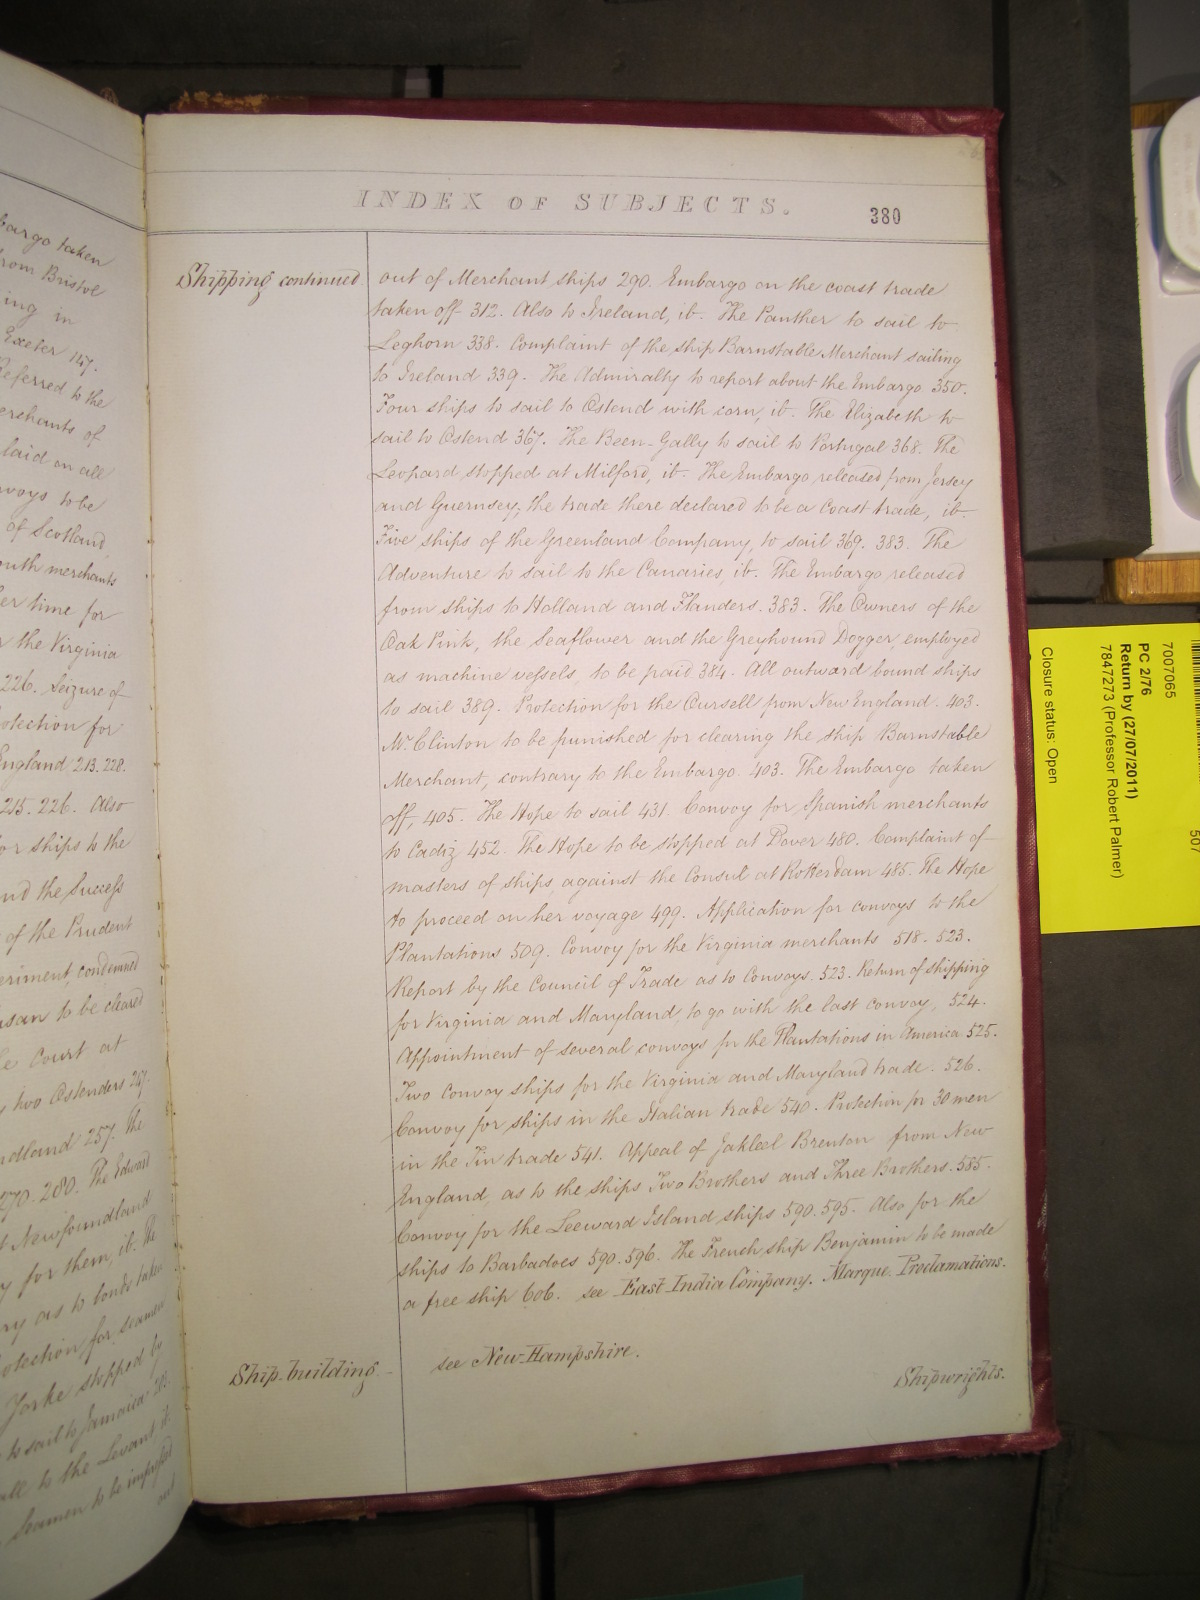 INDEX OF SUBJECTS.
380
Shipping continued
out of Merchant ships 290. Embargo on the coast trade
taken off 312. Also to Ireland, ib. The Panther to sail to
Leghorn 338. Complaint of the ship Barnstable Merchant sailing
to Ireland 339. The Admiralty to report about the Embargo 350.
Four ships to sail to Ostend with corn, ib. The Elizabeth to
sail to Ostend 367. The Been-Gally to sail to Portugal 368. The
Leopard stopped at Milford, ib. The Embargo released from Jersey
and Guernsey, the trade there declared to be a Coast trade, ib.
Five ships of the Greenland Company, to sail 369. 383. The
Adventure to sail to the Canaries, ib. The Embargo released
from ships to Holland and Flanders. 383. The Owners of the
Oak Pink, the Seaflower and the Greyhound Dogger, employed
as machine vessels, to be paid 384. All outward bound ships
to sail 389. Protection for the Cursell from New England. 403.
Mr Clinton to be punished for clearing the ship Barnstable
Merchant, contrary to the Embargo. 403. The Embargo taken
off, 405. The Hope to sail 431. Convoy for Spanish merchants
to Cadiz 452. The Hope to be stopped at Dover 480. Complaint of
masters of ships, against the Consul at Rotterdam 485. The Hope
to proceed on her voyage 499. Application for convoys to the
Plantations 509. Convoy for the Virginia merchants 518. 523.
Report by the Council of Trade as to Convoys. 523. Return of shipping
for Virginia and Maryland, to go with the last convoy, 524.
Appointment of several convoys for the Plantations in America 525.
Two convoy ships for the Virginia and Maryland trade. 526.
Convoy for ships in the Italian trade 540. Protection for 30 men
in the Tin trade 541. Appeal of Jahleel Brenton from New
England, as to the ships Two Brothers and Three Brothers. 585.
Convoy for the Leeward Island ships 590. 595. Also for the
ships to Barbadoes 590. 596. The French ship Benjamin to be made
a free ship 606. see East India Company. Marque. Proclamations.
Ship-building see New-Hampshire.
Shipwrights.
bargo taken
rom Bristol
ing in
Exeter 147.
Referred to the
erchants of
laid on all
nvoys to be
of Scotland
outh merchants
er time for
the Virginia
226. Seizure of
otection for
England 213. 228.
215. 226. Also
or ships to the
and the Success
of the Prudent
eriment, condemned
usan to be cleared
e Court at
two Ostenders 247.
ndland 257. The
270. 280. The Edward
t Newfoundland
y for them, ib. The
ry as to bonds taken
otection for seamen
Yorke stopped by
to sail to Jamaica
all to the Levant ib.
Seamen to be impressed
out
7007065
507
PC 2/76
Return by (27/07/2011)
7847273 (Professor Robert Palmer)
Closure status: Open